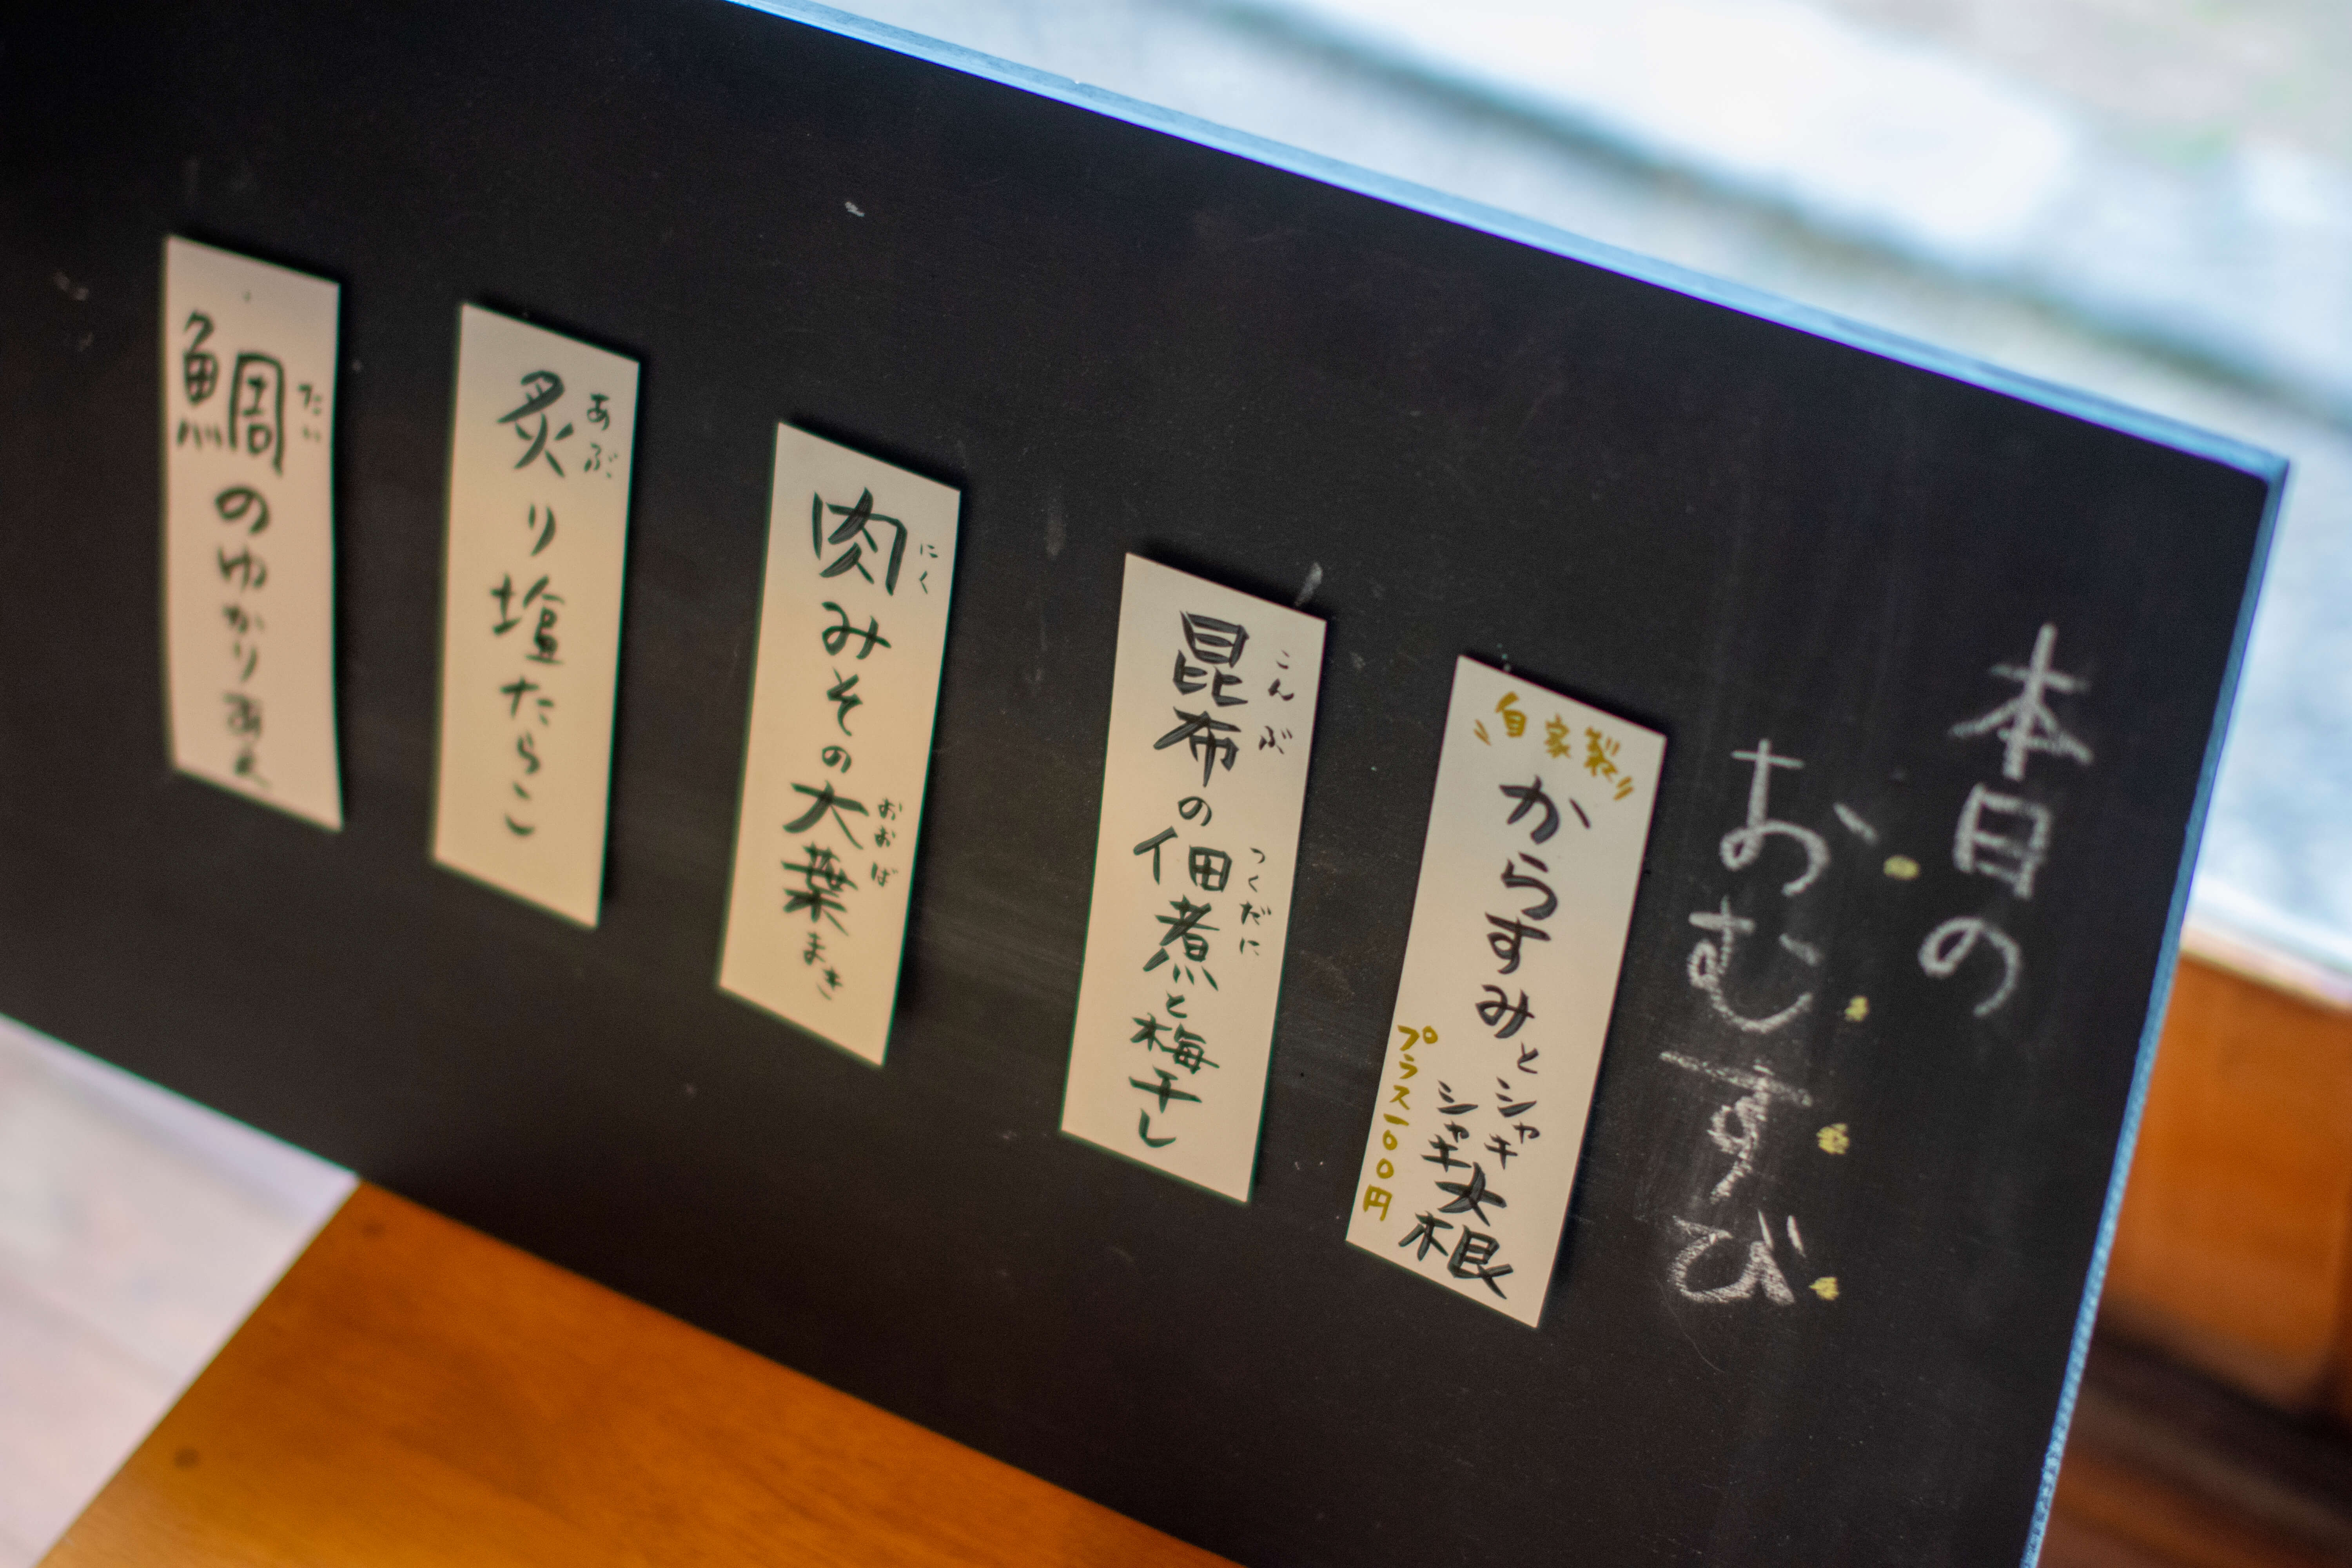 本日の
おむすび
自家製
からすみとシャキシャキ大根
プラス一00円
こんぶ
つくだに
昆布の佃煮と梅干し
にく
おおば
肉みその大葉まき
あぶ
炙り塩たらこ
たい
鯛のゆかりあえ